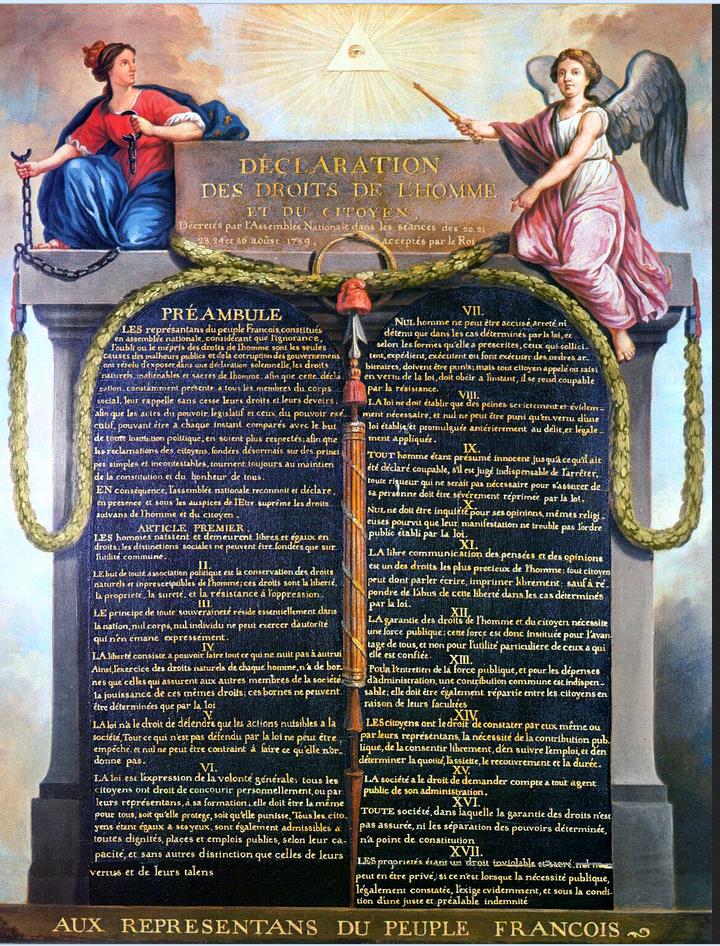 DÉCLARATION
DES DROITS DE L'HOMME
ET DU CITOYEN,
Décretés par l'Assemblée Nationale dans les séances des 20. 21
23. 24 et 26 août 1789, acceptés par le Roi
PRÉAMBULE
LES représentans du peuple Francois, constitués
en assemblée nationale, considérant que l'ignorance,
l'oubli ou le mépris des droits de l'homme sont les seules
causes des malheurs publics et de la corruption des gouvernemens
ont résolu d'exposer dans une déclaration solemnelle, les droits
naturels, inaliénables et sacrés de l'homme; afin que cette décla
ration, constamment présente a tous les membres du corps
social, leur rappelle sans cesse leurs droits et leurs devoirs;
afin que les actes du pouvoir legislatif et ceux du pouvoir exé
cutif, pouvant être a chaque instant comparés avec le but
de toute institution politique, en soient plus respectés; afin que
les reclamations des citoyens, fondées désormais sur des princi
pes simples et incontestables, tournent toujours au maintien
de la constitution et du bonheur de tous.
EN conséquence, l'assemblée nationale reconnoit et déclare,
en presence et sous les auspices de l'Etre suprême les droits
suivans de l'homme et du citoyen.
ARTICLE PREMIER.
LES hommes naissent et demeurent libres et égaux en
droits; les distinctions sociales ne peuvent être fondées que sur
l'utilité commune.
II.
LE but de toute association politique est la conservation des droits
naturels et inprescriptibles de l'homme; ces droits sont la liberté,
la propriété, la sureté, et la résistance à l'oppression.
III.
LE principe de toute souveraineté réside essentiellement dans
la nation, nul corps, nul individu ne peut exercer d'autorité
qui n'en émane expressement.
IV.
LA liberté consiste a pouvoir faire tout ce qui ne nuit pas à autrui
Ainsi, l'exercice des droits naturels de chaque homme, n'a de bor
nes que celles qui assurent aux autres membres de la société
la jouissance de ces mêmes droits; ces bornes ne peuvent
être déterminées que par la loi
V.
LA loi n'a le droit de défendre que les actions nuisibles a la
société. Tout ce qui n'est pas défendu par la loi ne peut être
empêche, et nul ne peut être contraint à faire ce qu'elle n'or-
donne pas.
VI.
LA loi est l'expression de la volonté générale; tous les
citoyens ont droit de concourir personnellement, ou par
leurs représentans, à sa formation; elle doit être la même
pour tous, soit qu'elle protege, soit qu'elle punisse, Tous les cito-
yens étant égaux a ses yeux, sont également admissibles a
toutes dignités, places et emplois publics, selon leur ca-
pacité, et sans autres distinction que celles de leurs
vertus et de leurs talens
VII.
NUL homme ne peut être accusé, arreté ni
détenu que dans les cas déterminés par la loi, et
selon les formes qu'elle a prescrites, ceux qui sollici-
tent, expédient, exécutent ou font exécuter des ordres ar-
bitraires, doivent être punis; mais tout citoyen appelé ou saisi
en vertu de la loi, doit obéir a l'instant, il se rend coupable
par la résistance.
VIII.
LA loi ne doit établir que des peines strictement et évidem-
ment nécessaire, et nul ne peut être puni qu'en vertu d'une
loi établie et promulguée antérierement au délit, et légale-
ment appliquée.
IX.
TOUT homme étant présumé innocent jusqu'à ce qu'il ait
été déclaré coupable, s'il est jugé indispensable de l'arrêter,
toute rigueur qui ne serait pas nécessaire pour s'assurer de
sa personne doit être sévérement réprimée par la loi.
X.
NUL ne doit être inquiété pour ses opinions, mêmes religi-
euses pourvu que leur manifestation ne trouble pas l'ordre
public établi par la loi.
XI.
LA libre communication des pensées et des opinions
est un des droits les plus precieux de l'homme; tout citoyen
peut donc parler écrire, imprimer librement; sauf à ré-
pondre de l'abus de cette liberté dans les cas déterminés
par la loi.
XII.
LA garantie des droits de l'homme et du citoyen nécessite
une force publique; cette force est donc instituée pour l'avan-
tage de tous, et non pour l'utilité particuliere de ceux a qui
elle est confiée.
XIII.
Pour l'entretien de la force publique, et pour les dépenses
d'administration, une contribution commune est indispen-
sable; elle doit être également répartie entre les citoyens en
raison de leurs facultées
XIV.
LES citoyens ont le droit de constater par eux même ou
par leurs représentans, la nécessité de la contribution pub-
lique, de la consentir librement, d'en suivre l'emploi, et d'en
déterminer la quotité, l'assiette, le recouvrement et la durée.
XV.
LA société a le droit de demander compte a tout agent
public de son administration.
XVI.
TOUTE société, dans laquelle la garantie des droits n'est
pas assurée, ni les séparation des pouvoirs déterminée,
n'a point de constitution
XVII.
LES proprietés étant un droit inviolable et sacré, nul ne
peut en être privé, si ce n'est lorsque la nécessité publique,
légalement constatée, l'exige evidemment, et sous la condi-
tion d'une juste et préalable indemnité
AUX REPRESENTANS DU PEUPLE FRANCOIS